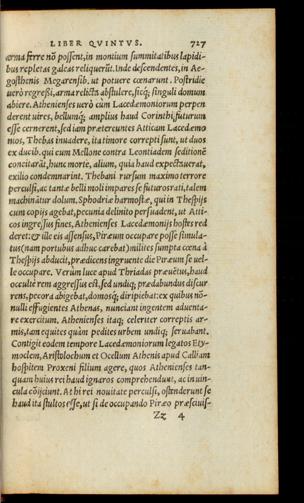 LIBER QVINTVS. 727
arma ferre nō possent, in montium summitatibus lapidi-
bus repletas galeas reliquerūt. Inde descendentes, in Ae-
gosthenis Megarensib. ut potuere cœnarunt. Postridie
uerò regressi, arma relictā abstulere, sicq; singuli domum
abiere. Athenienses uerò cùm Lacedæmoniorum perpen
derent uires, bellumq; amplius haud Corinthi, futurum
esse cernerent, sed iam prætereuntes Atticam Lacedæmo
nios, Thebas inuadere, ita timore correpti sunt, ut duos
ex ducib. qui cum Mellone contra Leontiadem seditionē
concitarāt, hunc morte, alium, quia haud expectauerat,
exilio condemnarint. Thebani rursum maximo terrore
perculsi, ac tantæ belli moli impares se futuros rati, talem
machinātur dolum. Sphodriæ harmostæ, qui in Thespijs
cum copijs agebat, pecunia delinito persuadent, ut Atti-
cos ingressus fines, Athenienses Lacedæmonijs hostes red
deret: & ille eis assensus, Piræum occupare posse simula-
tus (nam portubus adhuc carebat) milites sumpta cœna à
Thespijs abducit, prædicens ingruente die Piræum se uel-
le occupare. Verùm luce apud Thriadas præuētus, haud
occultè rem aggressus est. sed undiq; prædabundus discur
rens, pecora abigebat, domosq; diripiebat: ex quibus nō-
nulli effugientes Athenas, nunciant ingentem aduenta-
re exercitum. Athenienses itaq; celeriter correptis ar-
mis, tam equites quàm pedites urbem undiq; seruabant.
Contigit eodem tempore Lacedæmoniorum legatos Ety-
moclem, Aristolochum et Ocellum Athenis apud Calliam
hospitem Proxeni filium agere, quos Athenienses tan-
quam huius rei haud ignaros comprehendunt, ac in uin-
cula cōijciunt. At hi rei nouitate perculsi, ostenderunt se
haud ita stultos esse, ut si de occupando Piræo præsciuis-
Zz 4